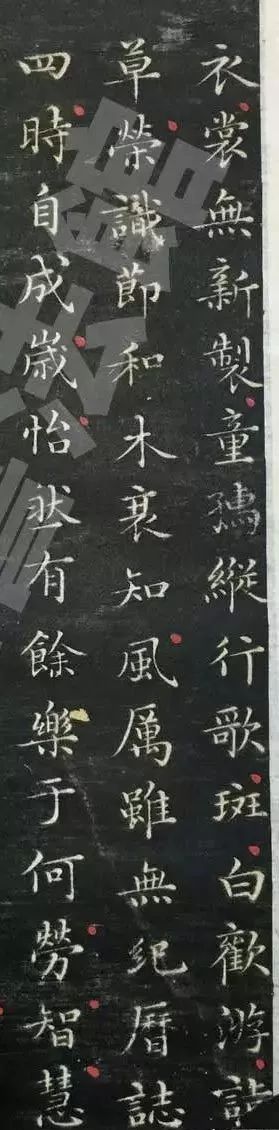 衣裳無新製童孺縱行歌斑白歡游詣
草榮識節和木衰知風厲雖無紀曆誌
四時自成歲怡然有餘樂于何勞智慧